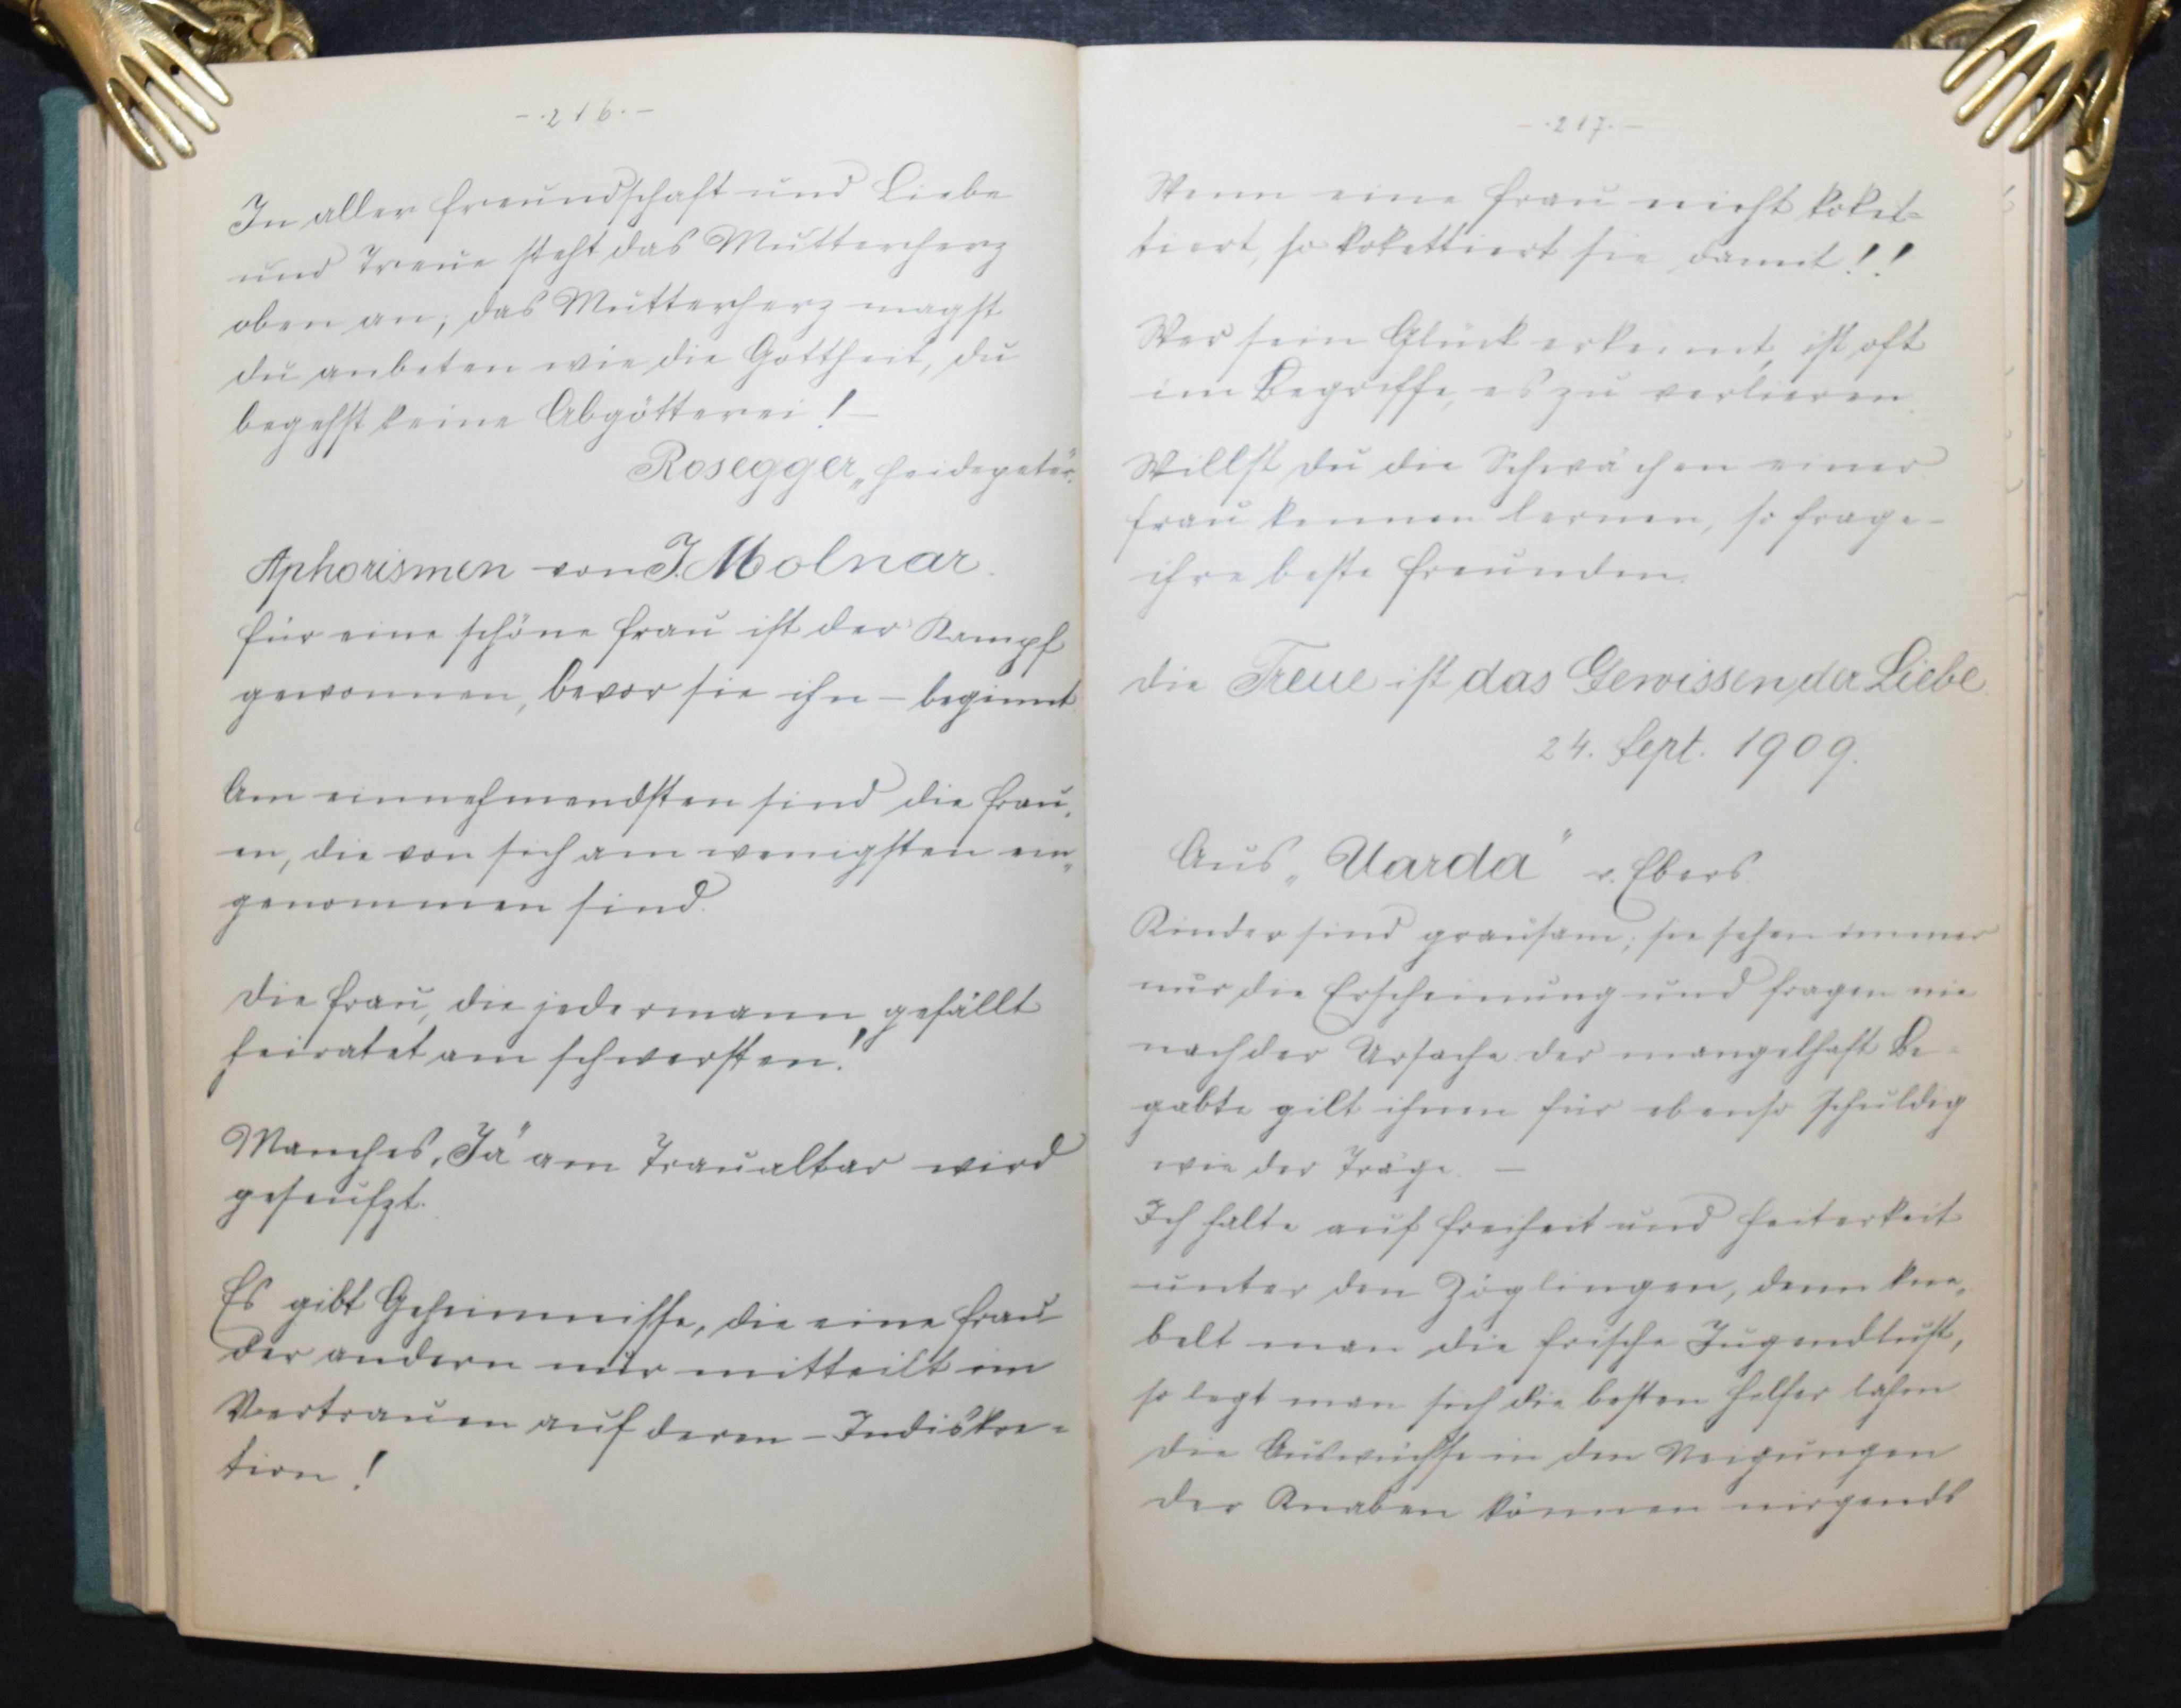 -·216·-
In aller Freundschaft und Liebe
und Treue steht das Mutterherz
oben an; das Mutterherz magst
du anbeten wie die Gottheit, du
begehst keine Abgötterei! –
Rosegger „Heidepeter".
Aphorismen von J. Molnar.
Für eine schöne Frau ist der Kampf
gewonnen, bevor sie ihn – beginnt.
Am einnehmendsten sind die Frau„
en, die von sich am wenigsten ein„
genommen sind.
Die Frau, die jedermann gefällt
heiratet am schwersten!
Manches „Ja" am Traualtar wird
geseufzt.
Es gibt Geheimnisse, die eine Frau
der andern nur mitteilt im
Vertrauen auf deren – Indiskre=
tion!
-·217·-
Wenn eine Frau nicht koket=
tiert, so kokettiert sie damit!!
Wer sein Glück erkennt, ist oft
im Begriffe, es zu verlieren.
Willst du die Schwächen einer
Frau kennen lernen, so frage
ihre beste Freundin.
Die Treue ist das Gewissen der Liebe.
24. Sept. 1909.
Aus „Uarda" v. Ebers.
Kinder sind grausam; sie sehen immer
nur die Erscheinung und fragen nie
nach der Ursache der mangelhaft Be-
gabte gilt ihnen für ebenso schuldig
wie der Träge. –
Ich halte auf Freiheit und Heiterkeit
unter den Zöglingen, denn kne„
belt man die frische Jugendlust,
so legt man sich die besten Helfer lahm
Die Auswüchse in den Neigungen
der Knaben können nirgends